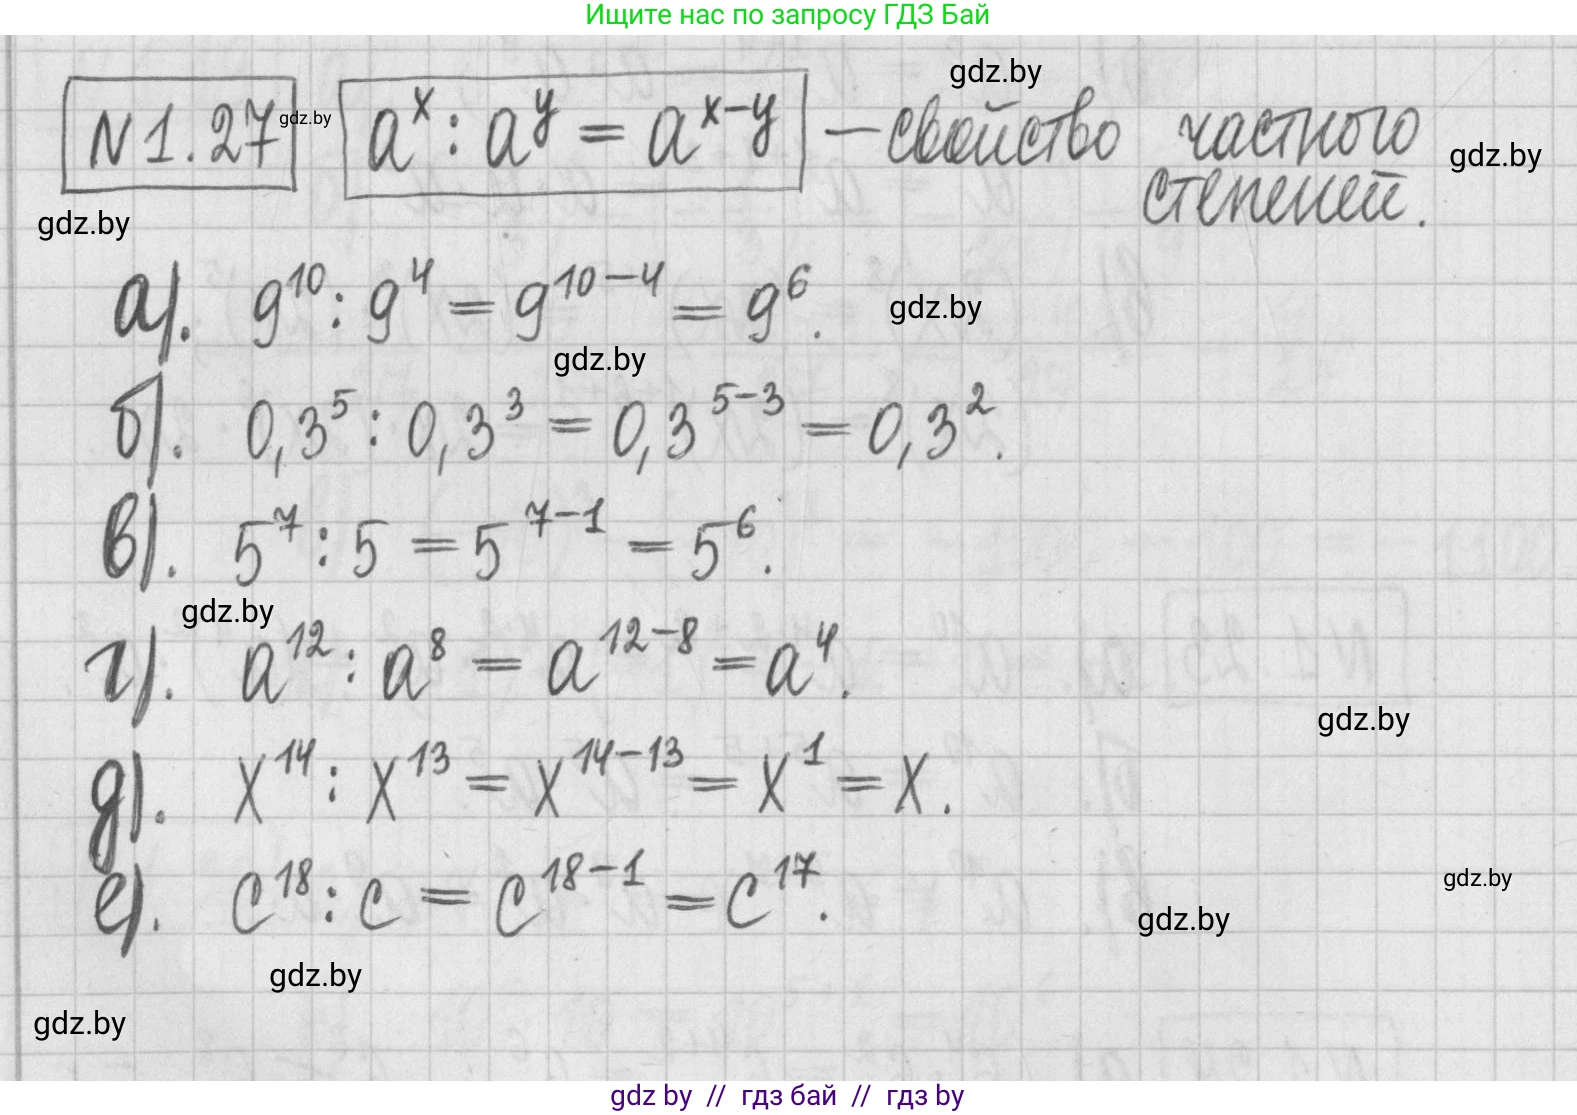 Ищите нас по запросу ГДЗ Бай
gdz.by
N 1.27 gdz.by a^x : a^y = a^{x-y} — свойство частного
gdz.by
степеней.
gdz.by
а). 9^{10} : 9^4 = 9^{10-4} = 9^6. gdz.by
gdz.by
б). 0,3^5 : 0,3^3 = 0,3^{5-3} = 0,3^2.
в). 5^7 : 5 = 5^{7-1} = 5^6.
gdz.by
г). a^{12} : a^8 = a^{12-8} = a^4.
gdz.by
д). x^{14} : x^{13} = x^{14-13} = x^1 = x.
е). c^{18} : c = c^{18-1} = c^{17}.
gdz.by
gdz.by
gdz.by
gdz.by
gdz by // гдз бай // гдз by